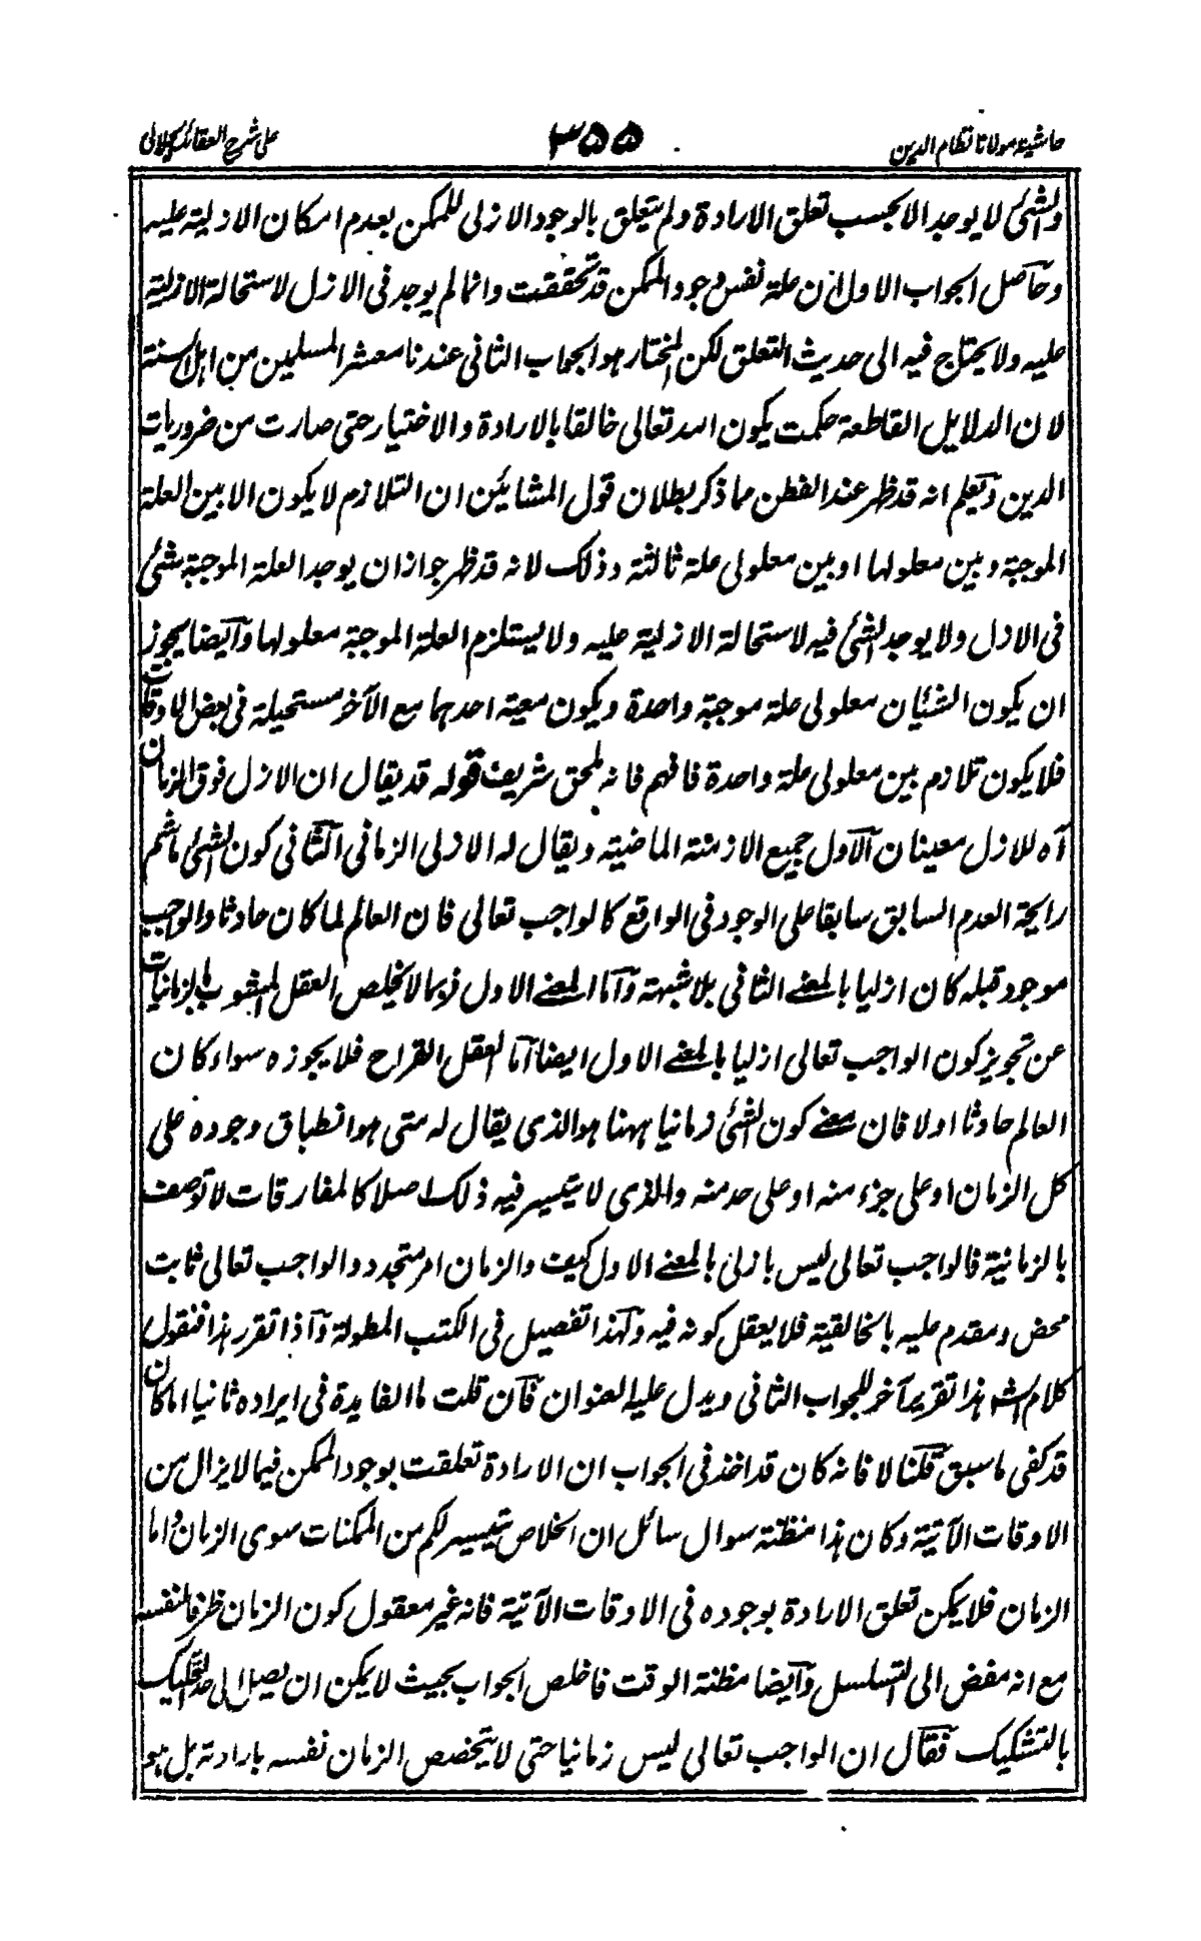 حاشیۃ مولانا نظام الدین
۳۵۵
علی شرح العقائد للجلالی
والشئ لا يوجد الا بحسب تعلق الارادة ولم يتعلق بالوجود الازلى للممكن بعدم امكان الازلية عليه
وحاصل الجواب الاول ان علة نفس وجود الممكن قد تحققت وانما لم يوجد فى الازل لاستحالة الازلية
عليه ولا يحتاج فيه الى حديث التعلق لكن المختار هو الجواب الثانى عندنا معشر المسلمين من اهل السنة
لان الدلايل القاطعة حكمت بكون الله تعالى خالقا بالارادة والاختيار حتى صارت من ضروريات
الدين وتعلم انه قد ظهر عند الفطن مما ذكر بطلان قول المشائين ان التلازم لا يكون الا بين العلة
الموجبة وبين معلولها او بين معلولى علة ثالثة وذلك لانه قد ظهر جواز ان يوجد العلة الموجبة لشئ
فى الازل ولا يوجد الشئ فيه لاستحالة الازلية عليه ولا يستلزم العلة الموجبة معلولها وآيضا يجوز
ان يكون الشئيان معلولى علة موجبة واحدة ويكون معية احدهما مع الآخر مستحيلة فى بعض الاوقات
فلا يكون تلازم بين معلولى علة واحدة فافهم فانه بلحق شريف قوله قد يقال ان الازل فوق الزمان
آه للازل معنيان آلاول جميع الازمنة الماضية ويقال له الازلى الزمانى آلثانى كون الشئ ما شم
رايحة العدم السابق سابقا على الوجود فى الواقع كالواجب تعالى فان العالم لما كان حادثا والواجب
موجود قبله كان ازليا بالمعنے الثانى بلا شبهة وآما المعنے الاول فربما لا يخلص العقل المشوب بالزمانيات
عن تجويز كون الواجب تعالى ازليا بالمعنے الاول ايضا آما العقل القراح فلا يجوزه سواء كان
العالم حادثا اولا فان معنے كون الشئ زمانيا ههنا هو الذى يقال له متى هو انطباق وجوده على
كل الزمان او على جزء منه او على حد منه والذى لا يتيسر فيه ذلك اصلا كالمفارقات لا توصف
بالزمانية فالواجب تعالى ليس بازلى بالمعنے الاول كيف والزمان امر متجدد والواجب تعالى ثابت
محض ومقدم عليه بالخالقية فلا يعقل كونه فيه ولهذا تفصيل فى الكتب المطولة وآذا تقرر هذا فنقول
كلام الشـ هذا تقرير آخر للجواب الثانى ويدل عليه العنوان فآن قلت ما الفايدة فى ايراده ثانيا اما كان
قد كفى ما سبق قلنا لا فانه كان قد اخذ فى الجواب ان الارادة تعلقت بوجود الممكن فيما لا يزال من
الاوقات الآتية وكان هذا مظنة سوال سائل ان الخلاص تيسير لكم من الممكنات سوى الزمان واما
الزمان فلا يمكن تعلق الارادة بوجوده فى الاوقات الآتية فانه غير معقول كون الزمان ظرفا لنفسه
مع انه مفض الى التسلسل وآيضا مظنة الوقت فاخلص الجواب بحيث لا يمكن ان يصل الى حد التشكيك
بالتشكيك فقآل ان الواجب تعالى ليس زمانيا حتى لا يتخصص الزمان نفسه بارادته بل هو